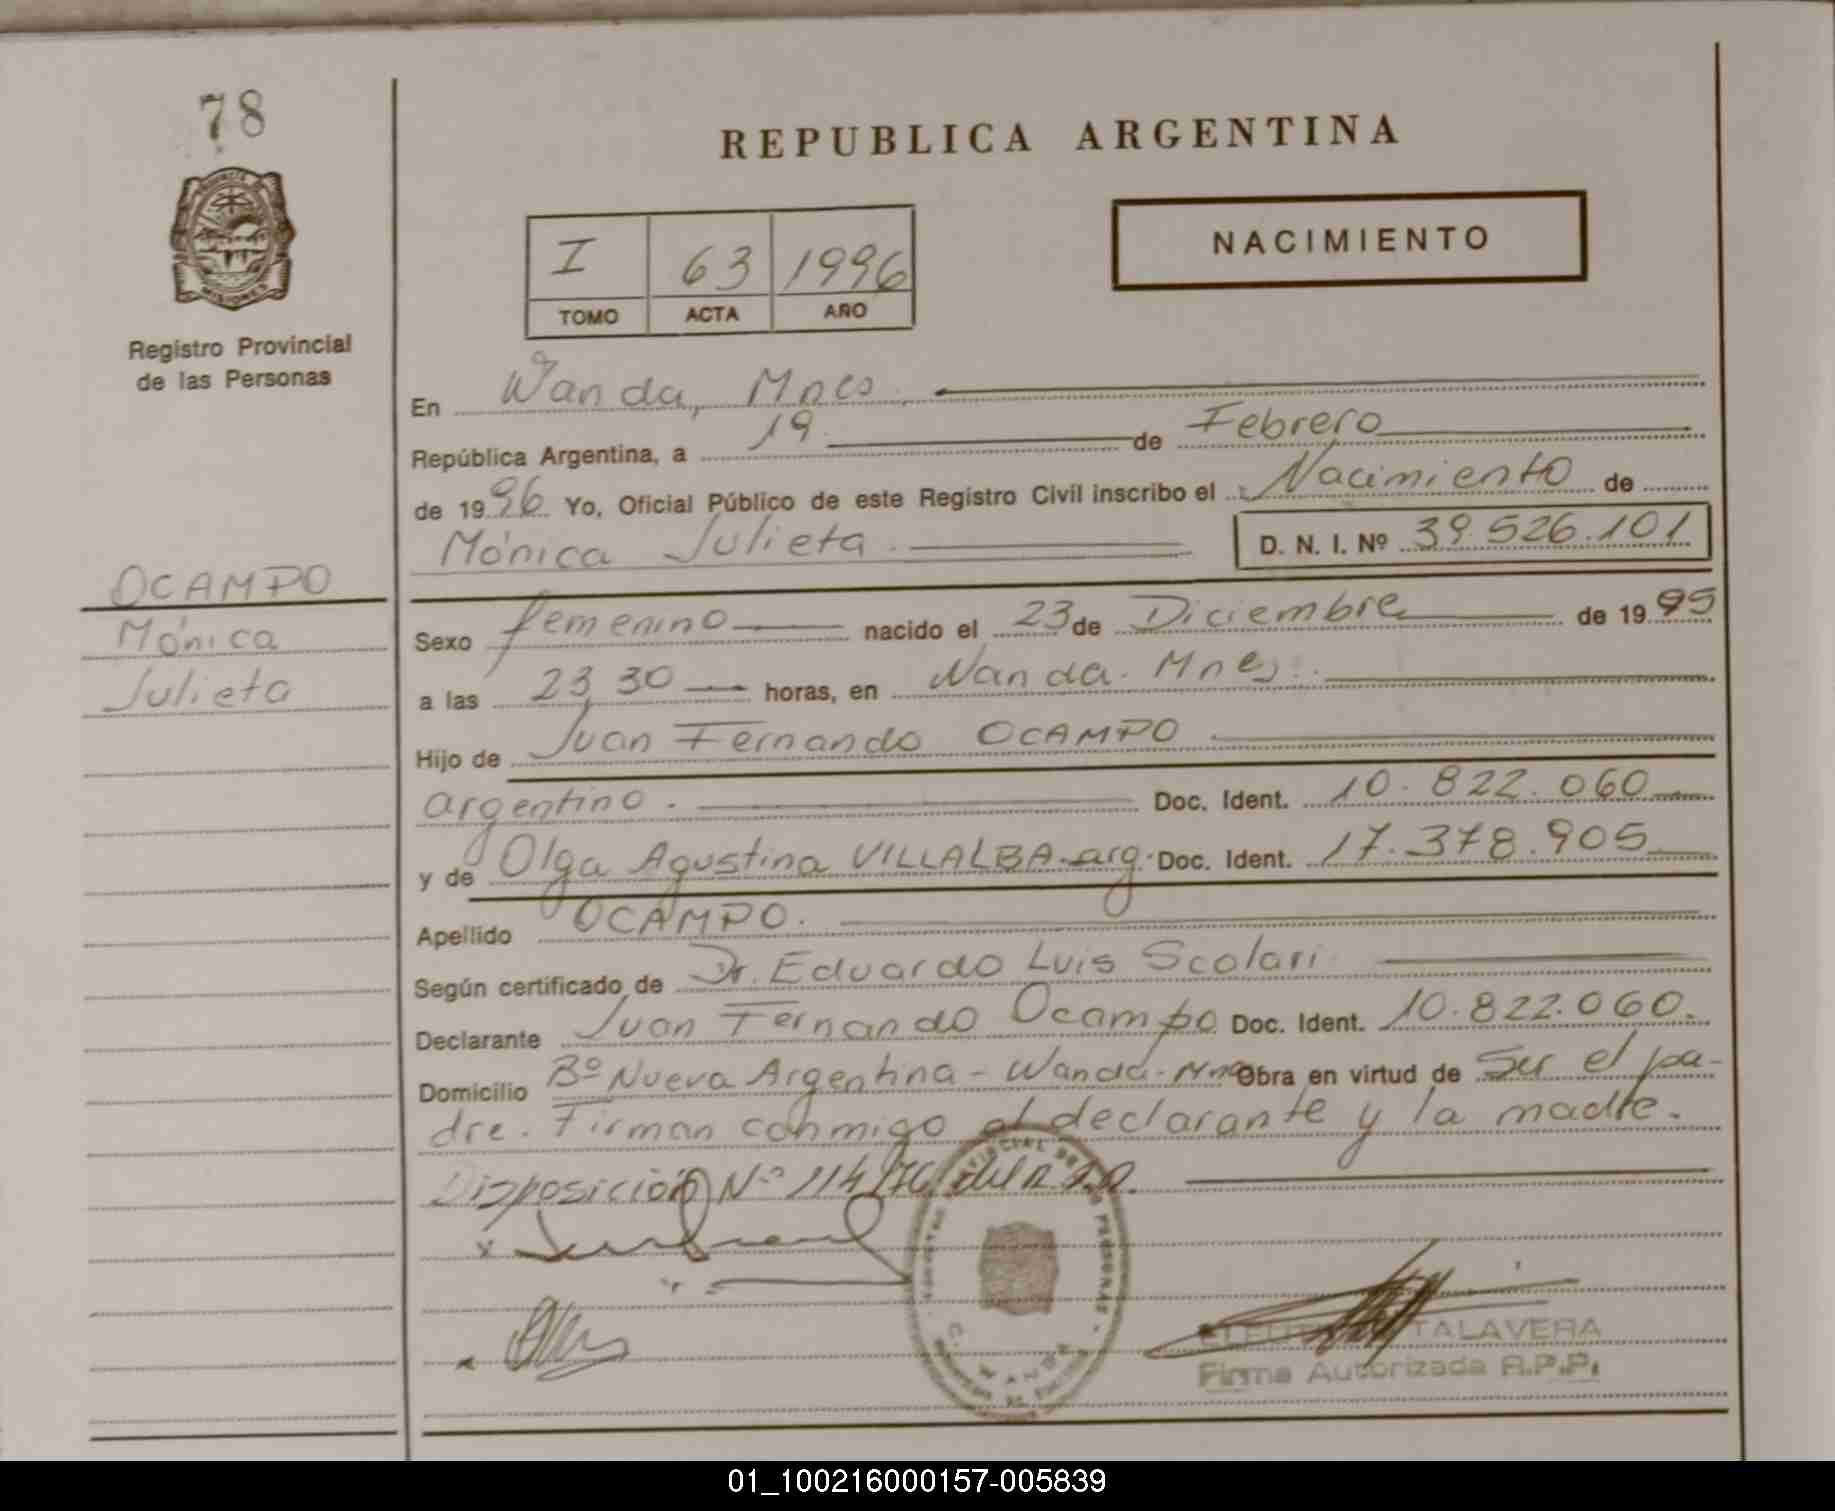 78
PROVINCIA DE
MISIONES
Registro Provincial
de las Personas
OCAMPO
Mónica
Julieta
REPUBLICA ARGENTINA
I 63 1996
TOMO ACTA AÑO
NACIMIENTO
En Wanda, Mnes.
República Argentina, a 19 de Febrero
de 1996 Yo, Oficial Público de este Registro Civil inscribo el Nacimiento de
Mónica Julieta. D. N. I. Nº 39.526.101
Sexo femenino nacido el 23 de Diciembre de 1995
a las 23,30 horas, en Wanda. Mnes.
Hijo de Juan Fernando OCAMPO
argentino. Doc. Ident. 10.822.060
y de Olga Agustina VILLALBA-arg. Doc. Ident. 17.378.905
Apellido OCAMPO.
Según certificado de Dr. Eduardo Luis Scolari
Declarante Juan Fernando Ocampo Doc. Ident. 10.822.060.
Domicilio Bº Nueva Argentina - Wanda. Mnes Obra en virtud de Ser el pa-
dre. Firman conmigo el declarante y la madre.
Disposición Nº 114/76 del
PERSONAS
TALAVERA
Firma Autorizada R.P.P.
01_100216000157-005839